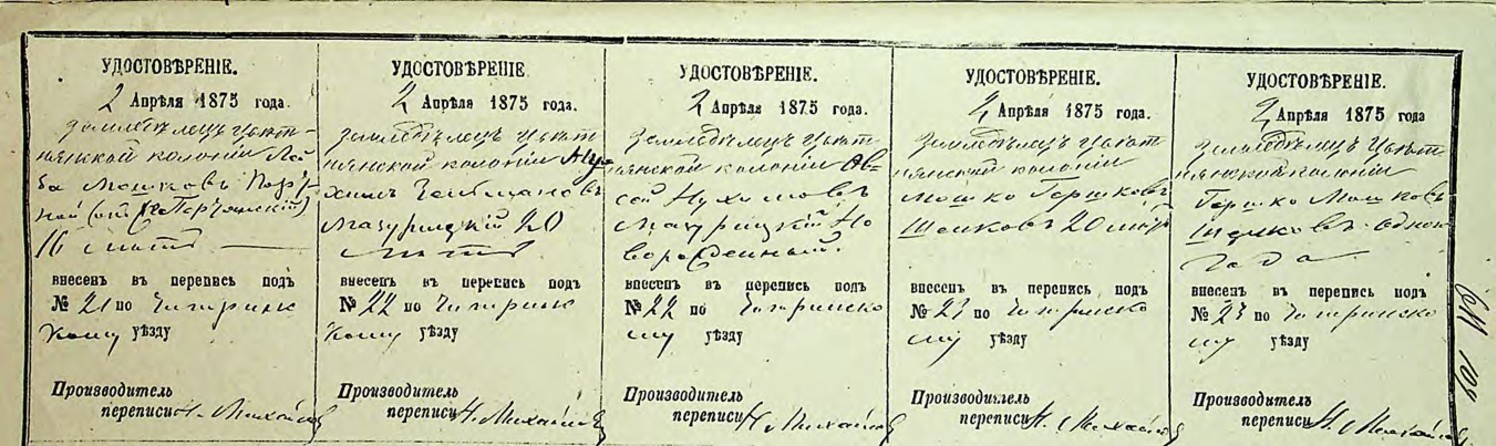 УДОСТОВѢРЕНІЕ.
2 Апрѣля 1875 года.
Земледѣлецъ Цвѣт-
нянской колоніи Лей
ба Мошковъ
16 лѣтъ
внесенъ въ перепись подъ
№ 21 по Чигиринс
кому уѣзду
Производитель
переписи Н. Михайлов
УДОСТОВѢРЕНІЕ
2 Апрѣля 1875 года.
Земледѣлецъ Цвѣт
нянской колоніи Ну-
химъ
Мазурицкій 20
лѣтъ
внесенъ въ перепись подъ
№ 22 по Чигиринс
кому уѣзду
Производитель
переписи Н. Михайлов
УДОСТОВѢРЕНІЕ.
2 Апрѣля 1875 года.
Земледѣлецъ Цвѣт
нянской колоніи Ов-
сей Нухимовъ
Мазурицкій Но
ворожденный.
внесенъ въ перепись подъ
№ 22 по Чигиринско
му уѣзду
Производитель
переписи Н. Михайлов
УДОСТОВѢРЕНІЕ.
2 Апрѣля 1875 года.
Земледѣлецъ Цвѣт
нянской колоніи
Мошко Гершковъ
20 лѣтъ
внесенъ въ перепись подъ
№ 23 по Чигиринско
му уѣзду
Производитель
переписи Н. Михайлов
УДОСТОВѢРЕНІЕ.
2 Апрѣля 1875 года
Земледѣлецъ Цвѣт
нянской колоніи
Гершко Мошковъ
одного
года
внесенъ въ перепись подъ
№ 23 по Чигиринско
му уѣзду
Производитель
переписи Н. Михайлов